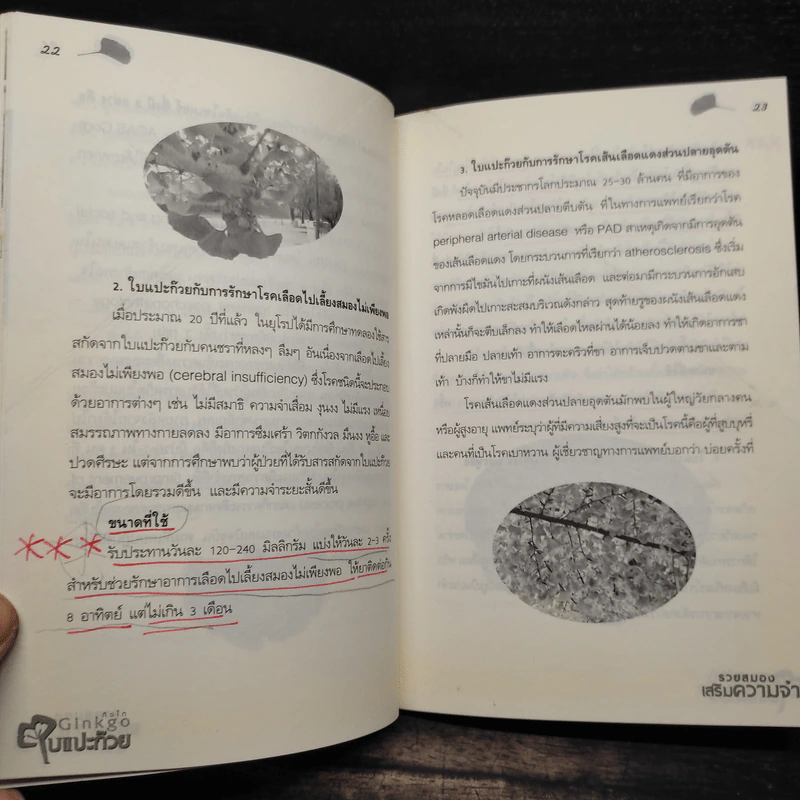 22
2. ใบแปะก๊วยกับการรักษาโรคเลือดไปเลี้ยงสมองไม่เพียงพอ
เมื่อประมาณ 20 ปีที่แล้ว ในยุโรปได้มีการศึกษาทดลองใช้สาร
สกัดจากใบแปะก๊วยกับคนชราที่หลงๆ ลืมๆ อันเนื่องจากเลือดไปเลี้ยง
สมองไม่เพียงพอ (cerebral insufficiency) ซึ่งโรคชนิดนี้จะประกอบ
ด้วยอาการต่างๆ เช่น ไม่มีสมาธิ ความจำเสื่อม งุนงง ไม่มีแรง เหนื่อย
สมรรถภาพทางกายลดลง มีอาการซึมเศร้า วิตกกังวล มึนงง หูอื้อ และ
ปวดศีรษะ แต่จากการศึกษาพบว่าผู้ป่วยที่ได้รับสารสกัดจากใบแปะก๊วย
จะมีอาการโดยรวมดีขึ้น และมีความจำระยะสั้นดีขึ้น
ขนาดที่ใช้
รับประทานวันละ 120-240 มิลลิกรัม แบ่งให้วันละ 2-3 ครั้ง
สำหรับช่วยรักษาอาการเลือดไปเลี้ยงสมองไม่เพียงพอ ให้ยาติดต่อกัน
8 อาทิตย์ แต่ไม่เกิน 3 เดือน
กิงโก
Ginkgo
ใบแปะก๊วย
23
3. ใบแปะก๊วยกับการรักษาโรคเส้นเลือดแดงส่วนปลายอุดตัน
ปัจจุบันมีประชากรโลกประมาณ 25-30 ล้านคน ที่มีอาการของ
โรคหลอดเลือดแดงส่วนปลายตีบตัน ที่ในทางการแพทย์เรียกว่าโรค
peripheral arterial disease หรือ PAD สาเหตุเกิดจากมีการอุดตัน
ของเส้นเลือดแดง โดยกระบวนการที่เรียกว่า atherosclerosis ซึ่งเริ่ม
จากการมีไขมันไปเกาะที่ผนังเส้นเลือด และต่อมามีกระบวนการอักเสบ
เกิดพังผืดไปเกาะสะสมบริเวณดังกล่าว สุดท้ายรูของผนังเส้นเลือดแดง
เหล่านั้นก็จะตีบเล็กลง ทำให้เลือดไหลผ่านได้น้อยลง ทำให้เกิดอาการชา
ที่ปลายมือ ปลายเท้า อาการตะคริวที่ขา อาการเจ็บปวดตามขาและตาม
เท้า บ้างก็ทำให้ขาไม่มีแรง
โรคเส้นเลือดแดงส่วนปลายอุดตันมักพบในผู้ใหญ่วัยกลางคน
หรือผู้สูงอายุ แพทย์ระบุว่าผู้ที่มีความเสี่ยงสูงที่จะเป็นโรคนี้คือผู้ที่สูบบุหรี่
และคนที่เป็นโรคเบาหวาน ผู้เชี่ยวชาญทางการแพทย์บอกว่า บ่อยครั้งที่
รวยสมอง
เสริมความจำ